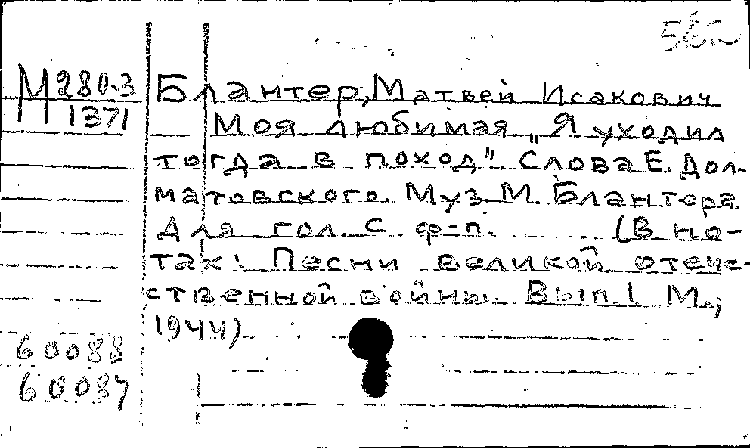 М 280-3
1371
Блантер, Матвей Исакович
Моя любимая „Я уходил
тогда в поход". Слова Е. Дол-
матовского. Муз. М. Блантера.
Для гол. с ф-п. (В но-
тах: Песни великой отече-
ственной войны. Вып. 1 М.,
1944)
60088
60087